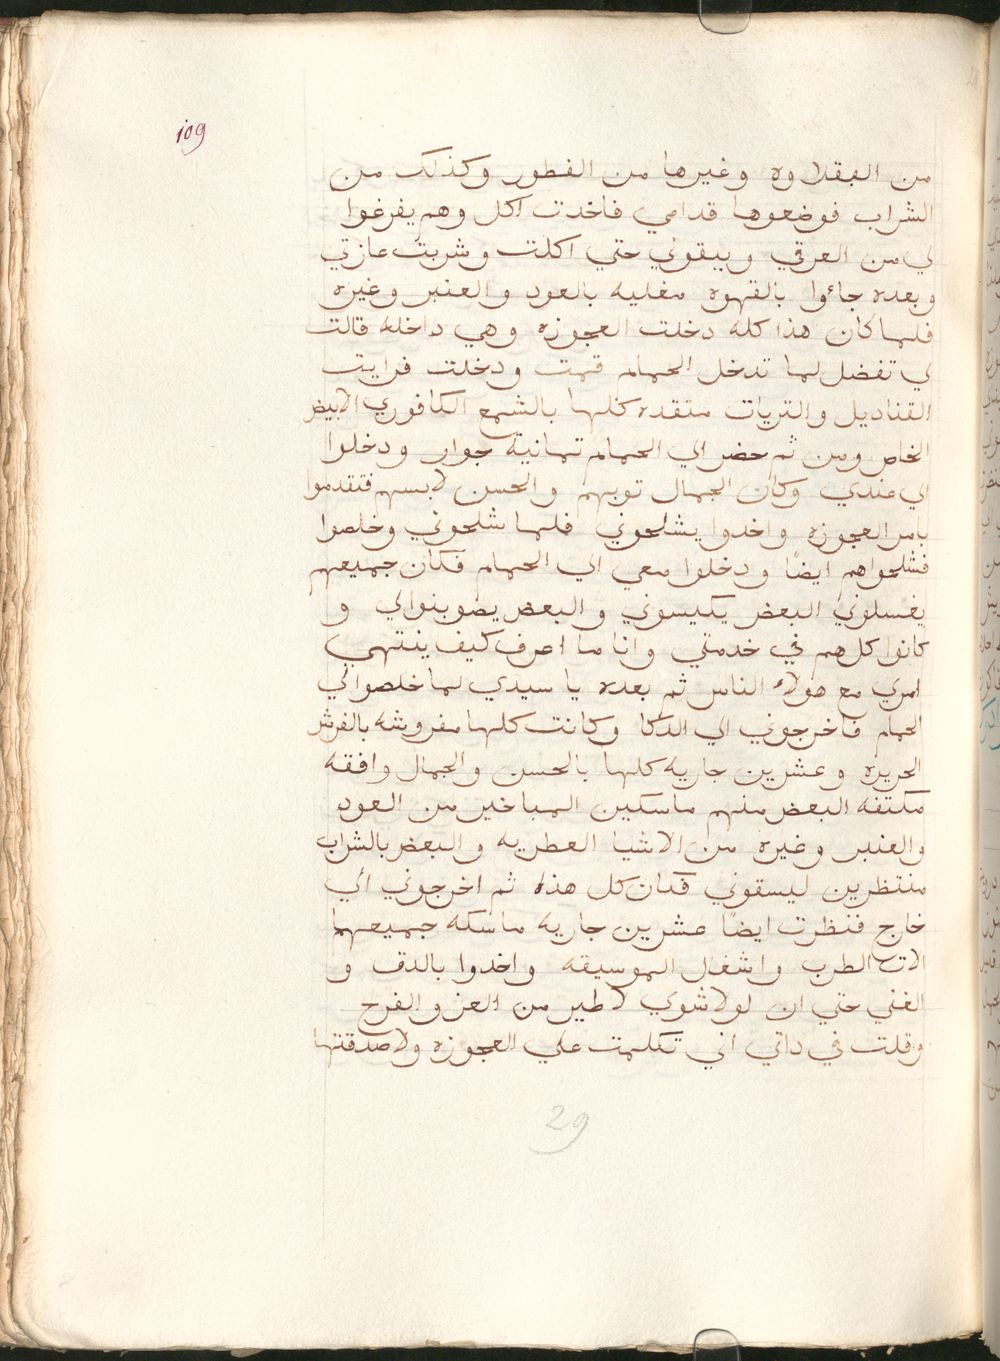 109
من البقلاوه وغيرها من الفطور وكذلك من
الشراب فوضعوها قدامي فاخدت اكل وهم يفرغوا
لي من العرقي ويبقوني حتي اكلت وشربت عازتي
وبعده جاءوا بالقهوه مغليه بالعود والعنبر وغيره
فلما كان هذا كله دخلت العجوزه وهي داخله قالت
لي تفضل لما تدخل الحمام قمت ودخلت فرايت
القناديل والتريات متقده كلها بالشمع الكافوري الابيض
الخاص ومن ثم حضر الي الحمام تمانية جوار ودخلوا
الي عندي وكان الجمال توبهم والحسن لابسهم فتقدموا
بامر العجوزه واخدوا يشلحوني فلما شلحوني وخلصوا
فشلحواهم ايضًا ودخلوا معي الي الحمام فكان جميعهم
يغسلوني البعض يكيسوني والبعض يصوبنوالي و
كانوا كل هم في خدمتي وانا ما اعرف كيف ينتهي
امري مع هولاء الناس ثم بعده يا سيدي لما خلصوا لي
الحمام فاخرجوني الي الدكا وكانت كلها مفروشه بالفرش
الحريره وعشرين جاريه كلها بالحسن والجمال وافقه
مكتفه البعض منهم ماسكين المباخير من العود
والعنبر وغيره من الاشيا العطريه والبعض بالشراب
منتظرين ليسقوني فكان كل هذا ثم اخرجوني الي
خارج فنظرت ايضًا عشرين جاريه ماسكه جميعهما
الات الطرب واشغال الموسيقه واخدوا بالدق و
الغني حتي ان لولا شوي لاطير من العز والفرح
وقلت في داتي اني تكلمت علي العجوزه ولا صدقتها
29